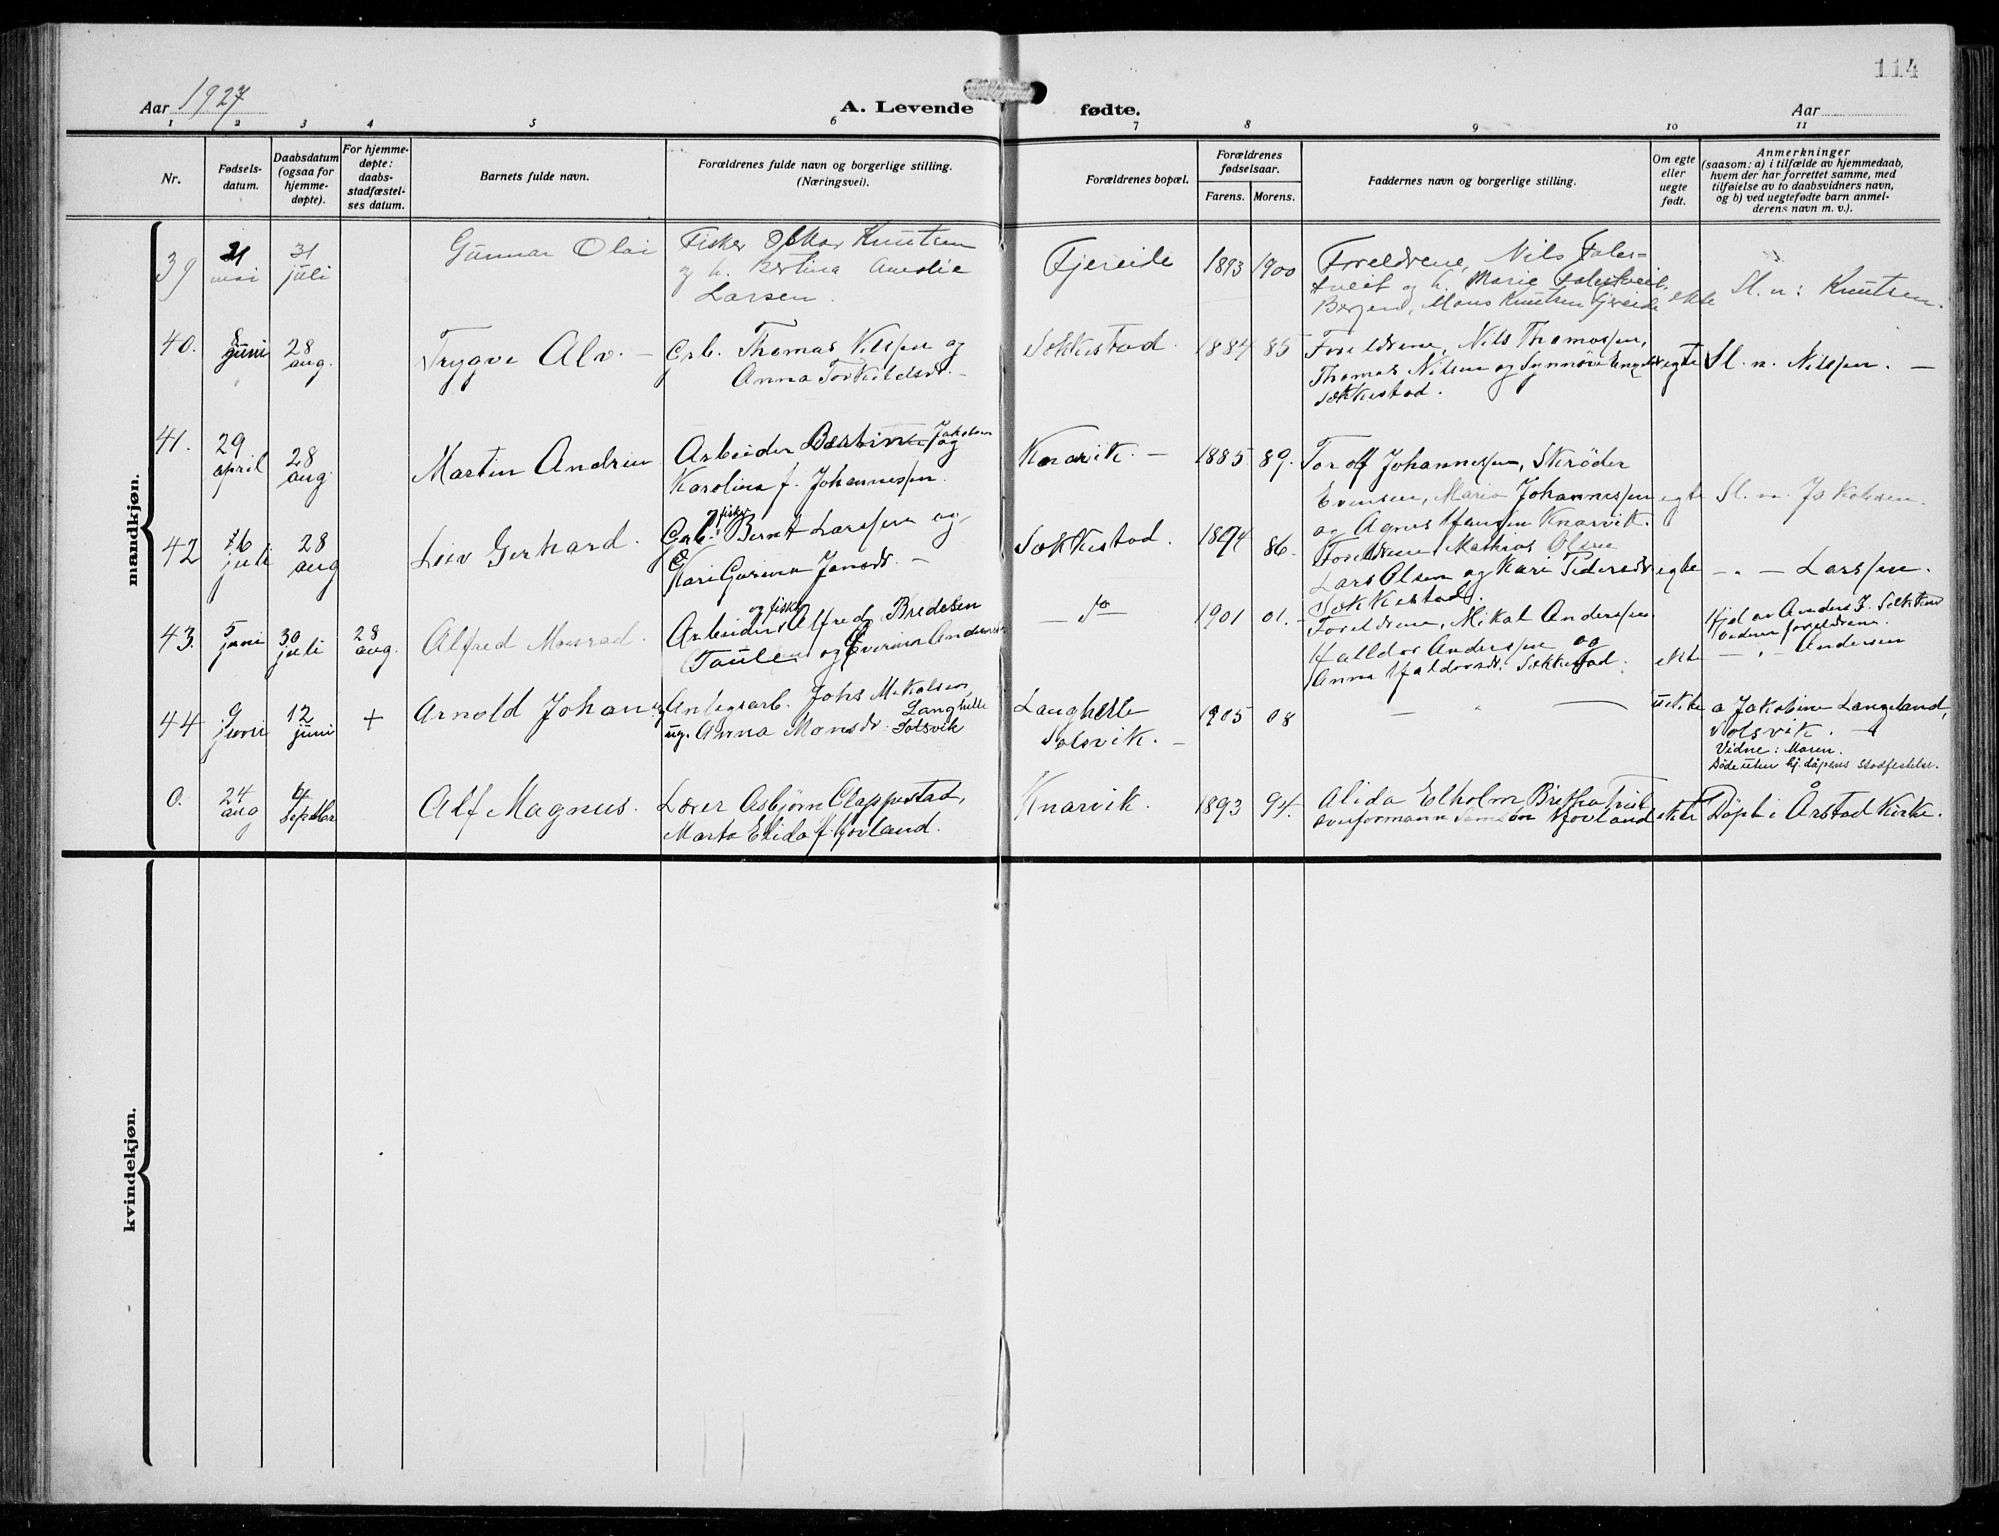 114
Aar 1927 A. Levende fødte. Aar
1 2 3 4 5 6 7 8 9 10 11
Nr.
Fødsels-
datum.
Daabsdatum
(ogsaa for
hjemme-
døpte).
For hjemme-
døpte:
daabs-
stadfæstel-
ses datum.
Barnets fulde navn.
Forældrenes fulde navn og borgerlige stilling.
(Næringsvei).
Forældrenes bopæl.
Forældrenes
fødselsaar.
Farens. Morens.
Faddernes navn og borgerlige stilling.
Om egte
eller
uegte
født.
Anmerkninger
(saasom: a) i tilfælde av hjemmedaab,
hvem der har forrettet samme, med
tilføielse av to daabsvidners navn,
og b) ved uegtefødte barn anmel-
derens navn m. v.).
mandkjøn.
39 31 mai 31 juli Gunnar Olai
Fisker Oskar Knutsen
og h. Bertina Amalie
Larsen.
Fjereide 1893 1900
Foreldrene, Nils
og h. Marie
Bergen, Mons Knutsen
ekte Sl. n: Knutsen.
40. 8 juni 28 aug. Trygve Alv. —
Grb. Thomas Nilssen og
Anna Torkildsdr. —
Sekkestad. 1884 85
Foreldrene, Nils Thomassen,
Thomas Nilsen og Synnøve
Sekkestad.
egte Sl. n. Nilssen. —
41. 29 april 28 aug Martin Andrew
Arbeider Bertin Jakobsen og
Karolina f. Johannessen.
Knarvik. — 1885 89.
Torolf Johannessen, Skrøder
Evensen, Maria Johannessen
og Agnes Hansen Knarvik.
egte Sl. n. Jakobsen.
42 16 juli 28 aug Leiv Gerhard.
Grb. & fisker Bernt Larssen og
Kari Gurina Jansdr. —
Sekkestad. 1894 86.
Foreldrene, Mathias Olsen
Lars Olsen og Kari Pedersdr
Sekkestad.
egte — " — Larssen.
43. 5 juni 30 juli 28 aug. Alfred Monrad.
Arbeider og fisker Alfred Bredesen
Taule og Everine Andersen
— So — 1901 01.
Foreldrene, Mikal Anderssen
Halldor Anderssen og
Anna Haldorsdr. Sekkestad.
ekte
Hjd av Anders J. Sekkestad
vidner foreldrene.
— " — Andersen
44 9 juni 12 juni + Arnold Johan
Anlegsarb. Johs Mikalsen Langhelle
ug. Anna Monsdr. Solsvik
Langhelle
Solsvik. — 1905 08
— " —
uekte
a Jakobine Langeland,
Solsvik. —
Vidne: Maren.
Døde uten hj. dåpens stadfestelse.
0. 24 aug 4 septbr Alf Magnus.
Lærer Asbjørn Clappestad,
Marta Elida f. Hovland.
Knarvik. 1893 94.
Alida Elholm
Samson Hovland
ekte Døpt i Årstad Kirke.
kvindekjøn.